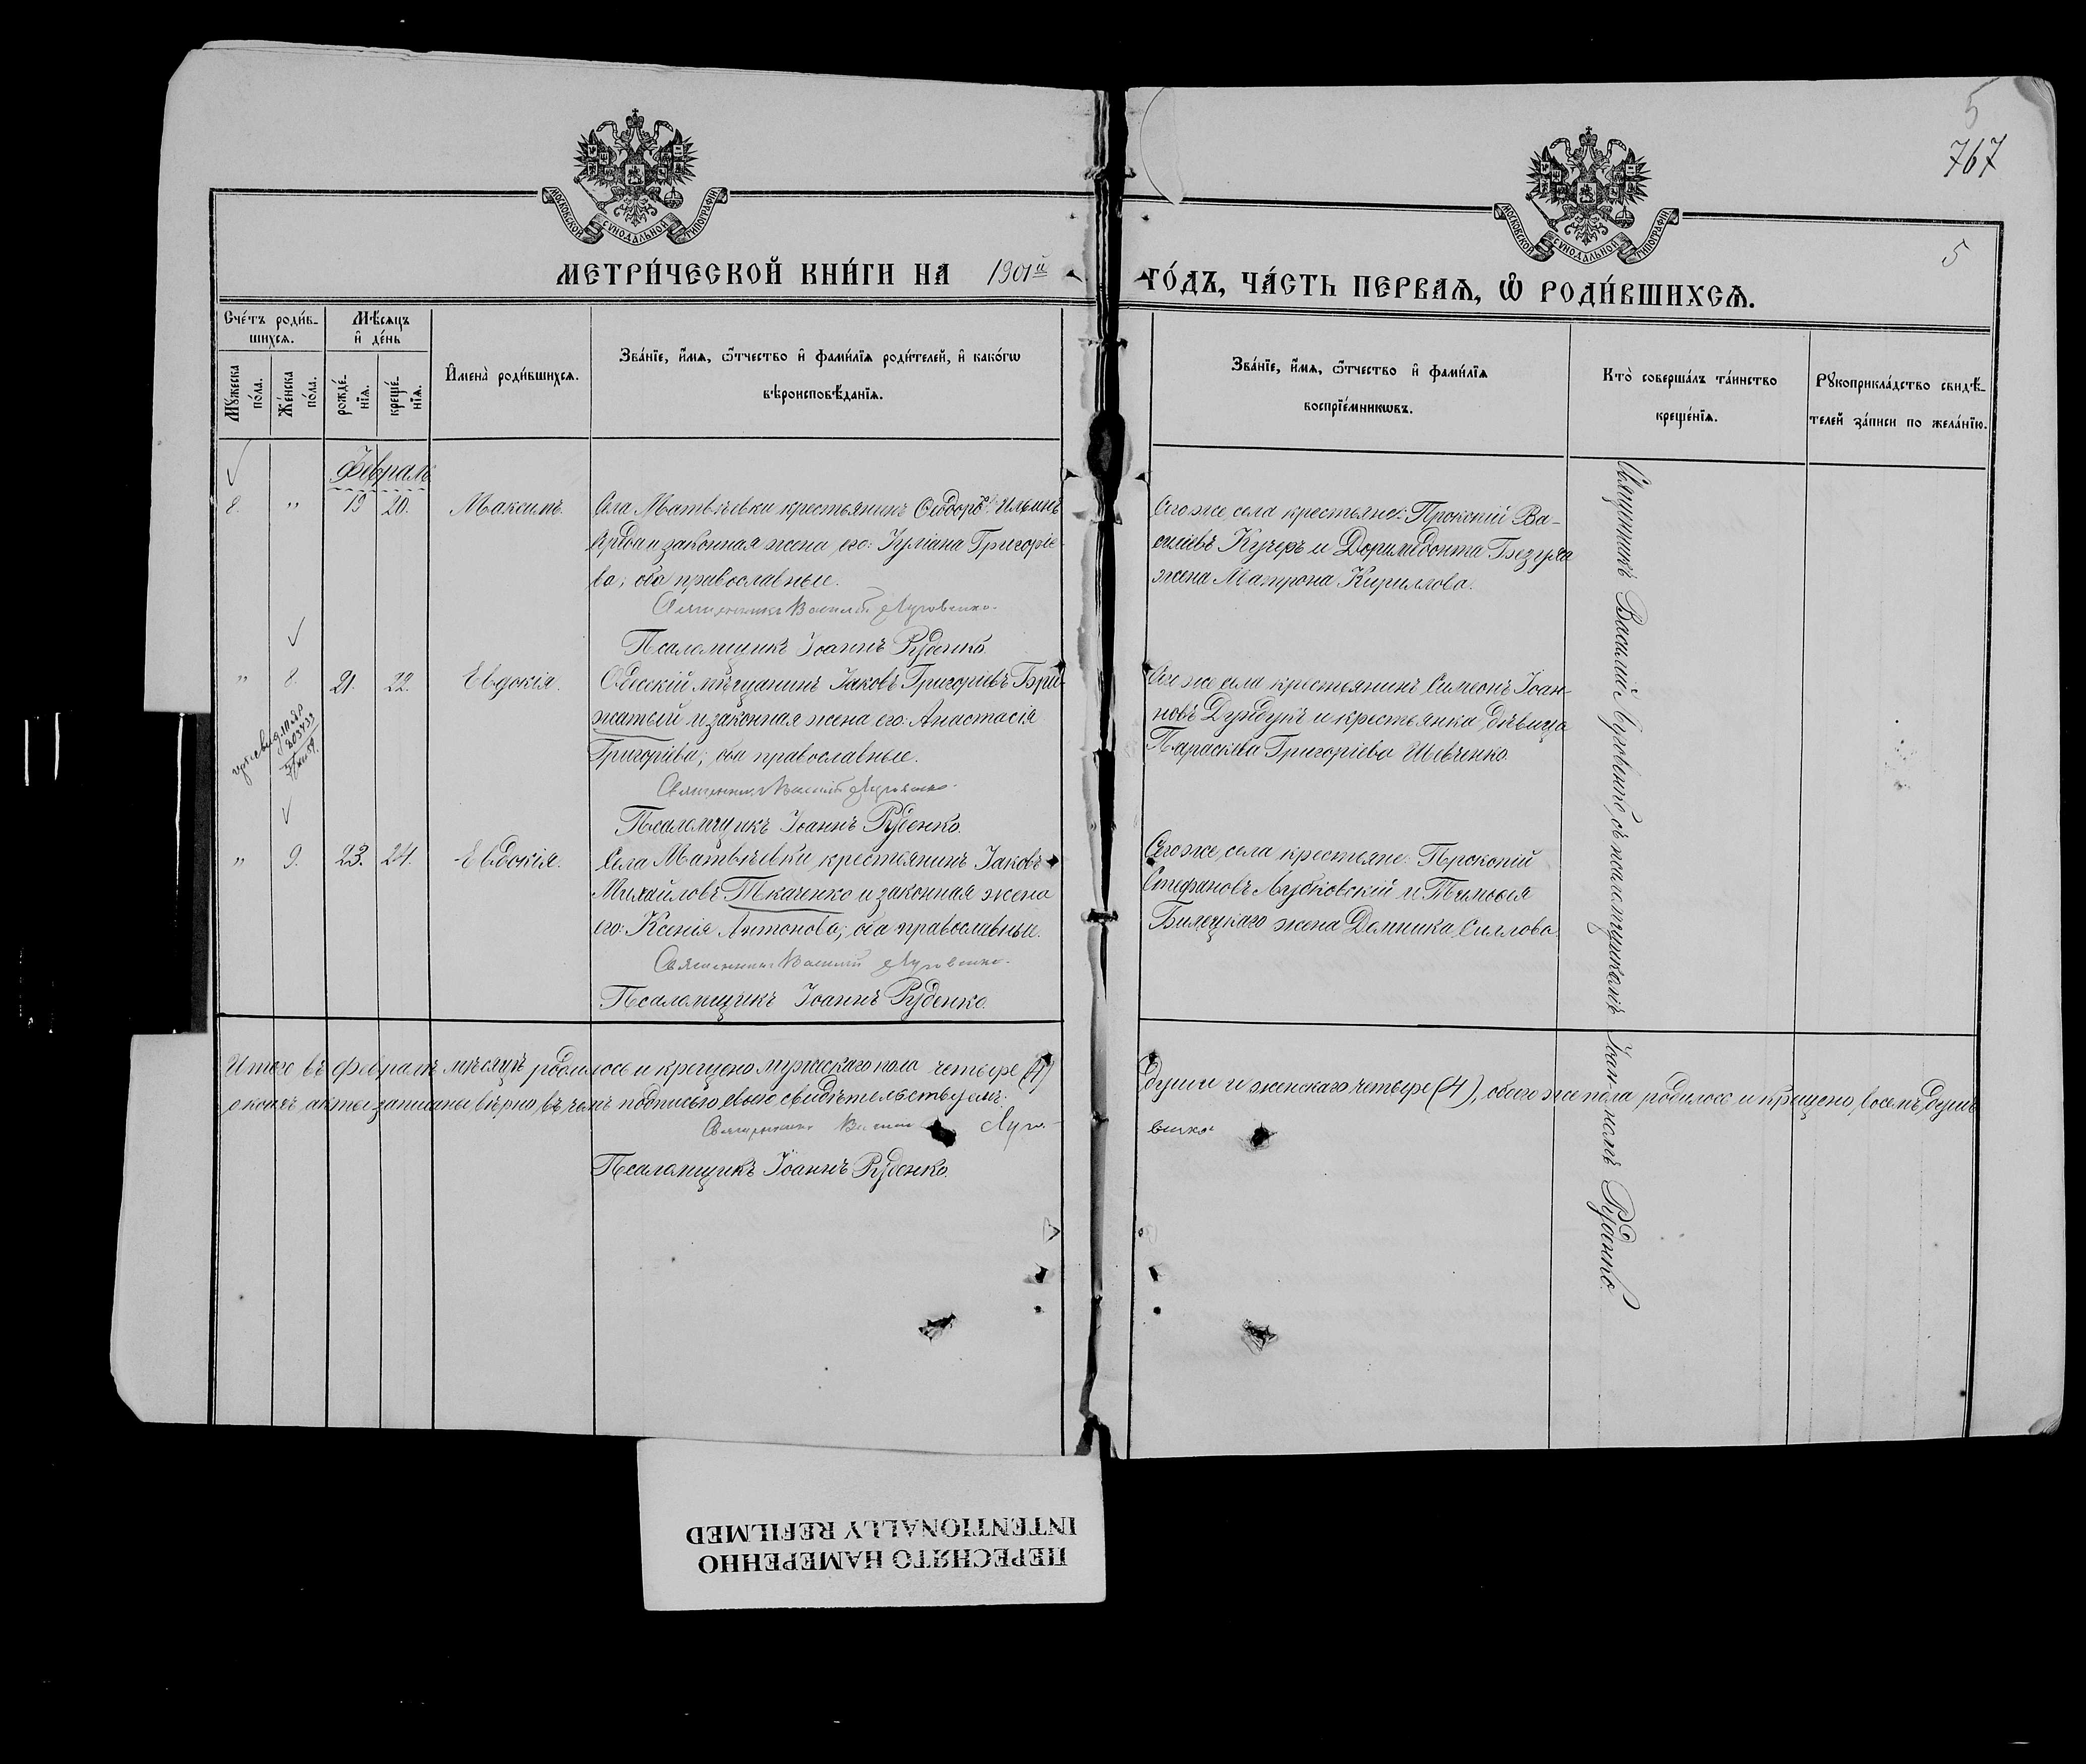 5
767
5
МОСКОВСКОЙ СѴНОДАЛЬНОЙ ТИПОГРАФІИ
МОСКОВСКОЙ СѴНОДАЛЬНОЙ ТИПОГРАФІИ
МЕТРИ́ЧЕСКОЙ КНИ́ГИ НА 1901й
ГО́ДЪ, ЧА́СТЬ ПЕРВАѦ, Ѡ҆ РОДИ́ВШИХСѦ.
Сче́тъ роди́в-
шихсѧ.
Мꙋжеска по́ла.
Же́нска по́ла.
Мѣ́сѧцъ
и҆ де́нь
рожде́-нїѧ.
креще́-нїѧ.
И҆мена̀ роди́вшихсѧ.
Зва́нїе, и҆́мѧ, ѻ҆́тчество и҆ фами́лїѧ роди́телей, и҆ како́гѡ
вѣроисповѣ́данїѧ.
Зва́нїе, и҆́мѧ, ѻ҆́тчество и҆ фами́лїѧ
воспрїе́мникѡвъ.
Кто̀ соверша́лъ та́инство
креще́нїѧ.
Рꙋкоприкла́дство свидѣ́-
телей за́писи по жела́нїю.
Февраль
8. " 19 20. Максимъ.
Села Матвѣевки крестьянинъ Ѳеодоръ Ильинъ
и законная жена его: Іуліана Григоріе-
ва; оба православные.
Священникъ Василій Луговенко.
Псаломщикъ Іоаннъ Руденко.
Того же села крестьяне: Прокопій Ва-
сильевъ Кучеръ и Доримедонта Безугла
жена Матрона Кириллова.
" 8. 21. 22. Евдокія.
Одесскій мѣщанинъ Іаковъ Григорьевъ Бри-
жатый и законная жена его: Анастасія
Григорьева; оба православные.
Священникъ Василій Луговенко.
Псаломщикъ Іоаннъ Руденко.
Того же села крестьянинъ Симеонъ Іоан-
новъ Дундукъ и крестьянка дѣвица
Параскева Григоріева Шевченко.
" 9. 23. 24. Евдокія.
Села Матвѣевки крестьянинъ Іаковъ
Михайловъ Ткаченко и законная жена
его: Ксенія Антонова; оба православные.
Священникъ Василій Луговенко.
Псаломщикъ Іоаннъ Руденко.
Того же села крестьяне: Прокопій
Стефановъ Лубковскій и Тимоѳея
Билецкаго жена Домника Силлова.
Священникъ Василій Луговенко, съ псаломщикомъ Іоан-номъ Руденко.
Итого въ февралѣ мѣсяцѣ родилось и крещено мужескаго пола четыре (4)
души и женскаго четыре (4), обоего же пола родилось и крещено восемь душъ
акты записаны вѣрно, въ чемъ подписью своею свидѣтельствуемъ:
Священникъ Василій Луго-
венко
Псаломщикъ Іоаннъ Руденко.
ПЕРЕСНЯТО НАМЕРЕННО
INTENTIONALLY REFILMED